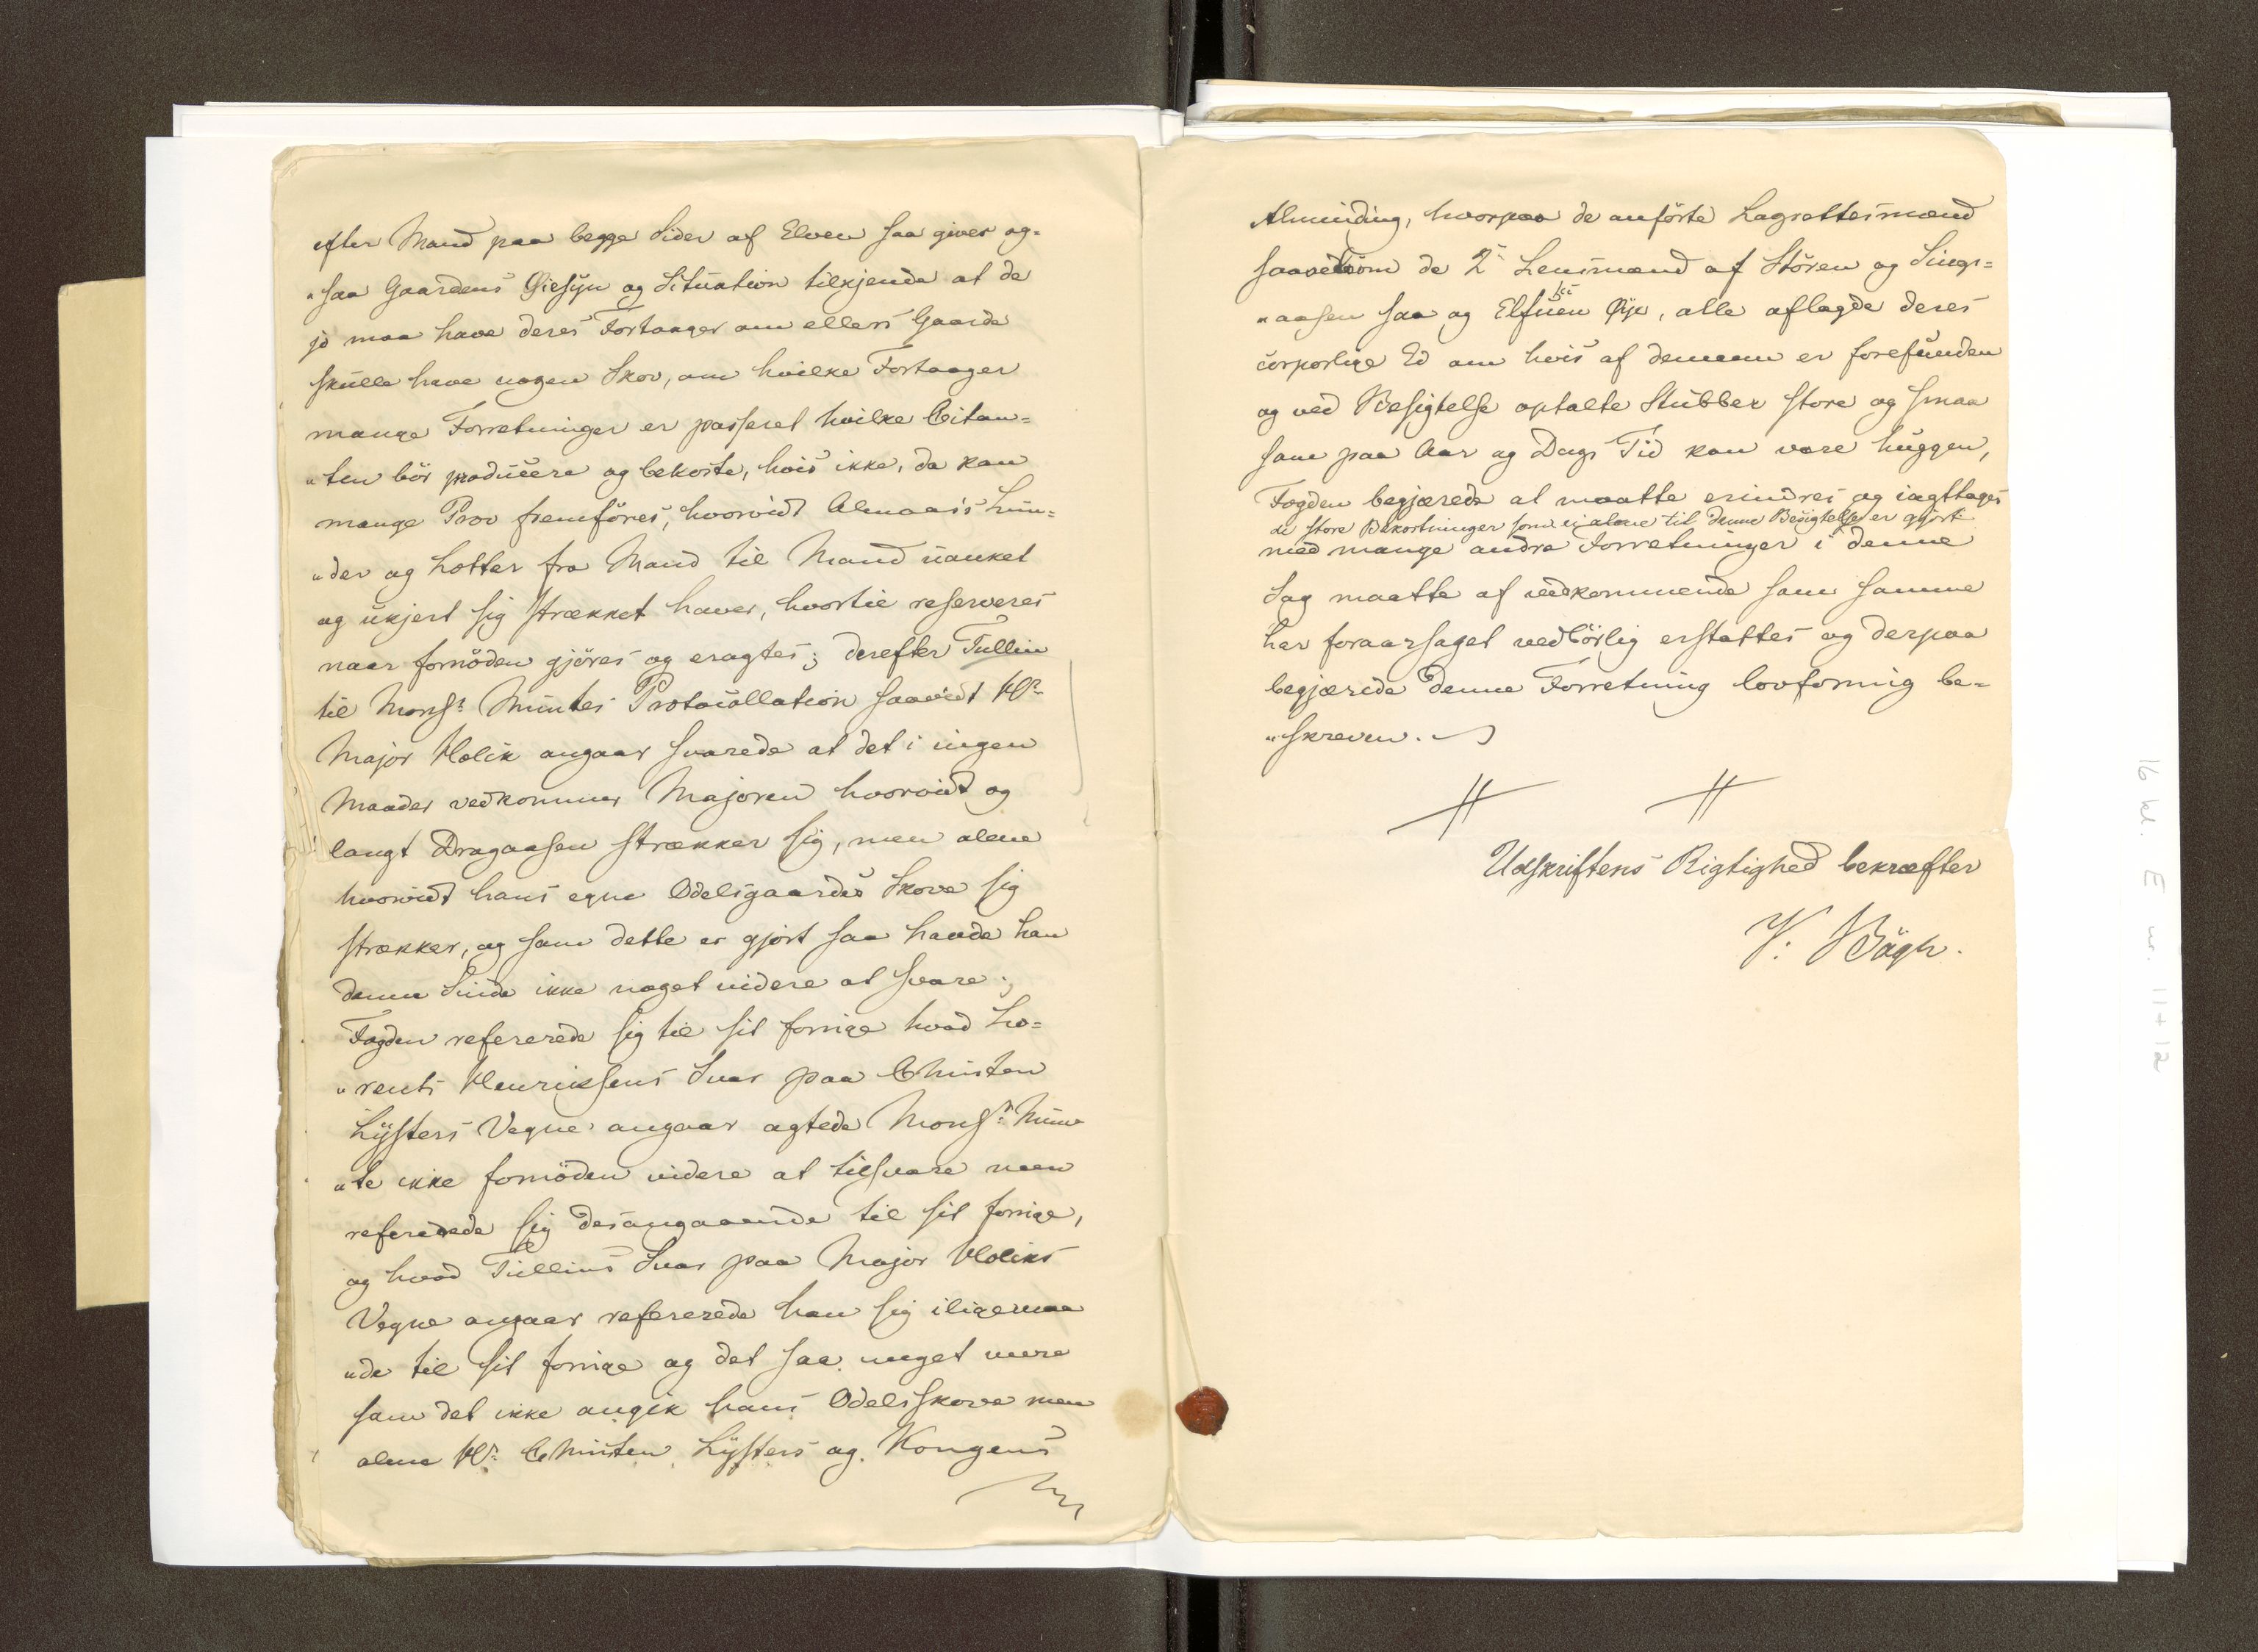 efter Mand paa begge Sider af Elven saa giver og-
"saa Gaardens Øiesÿn og Situation tilkjende at de
jo maa have deres Fortaager om ellers Gaarde
skulle have nogen Skov, om hvilke Fortaager
mange Forretninger er passeret hvilke Citan=
"ten bör producere og bekoste, hvis ikke, da kan
mange Prov fremföres, hvorvidt Almaas's Lun=
"der og Lotter fra Mand til Mand uanket
og ukjert sig strækket haver, hvortil reserveres
naar fornöden gjöres og eragtes; derefter Tullin
til Monsr. Muntes Protocollation saavidt Hr.
Major Holck angaar svarede at det i ingen
Maader vedkommer Majoren hvorvidt og
langt Dragaasen strækker sig, men alene
hvorvidt hans egne Odelsgaardes Skove sig
strækker, og som dette er gjort saa havde han
denne Sinde ikke noget videre at svare;
Fogden refererede sig til sit forrige hvad Lo=
"rents Henriksens Svar paa Christen
Lÿsters Vegne angaar agtede Monsr. Mun
"te ikke fornöden videre at tilsvare men
refererede sig desangaaende til sit forrige,
og hvad Tullins Svar paa Major Holcks
Vegne angaar refererede han sig iligemaa
"de til sit forrige og det saa meget mere
som det ikke angik hans Odelsskove men
alene Hr. Christen Lÿsters og Kongens
Alminding, hvorpaa de anförte Lagrettesmænd
saavelsom de 2de Lensmænd af Stören og Sings=
"aasen saa og Elfuen Øje, alle aflagde deres
corporlige Ed om hvis af dennem er forefunden
og ved Besigtelse optalte Stubber store og smaa
som paa Aar og Dags Tid kan være huggen,
Fogden begjærede at maatte erindres og iagttages
de store Bekostninger som ej alene til denne Besigtelse er gjort
med mange andre Forretninger i denne
Sag maatte af vedkommende som samme
har foraarsaget vedbörlig erstattes og derpaa
begjærede denne Forretning lovformig be=
"skreven.
Udskriftens Rigtighed bekræfter
V. Bögh.
16 kl. E nr. 11+12